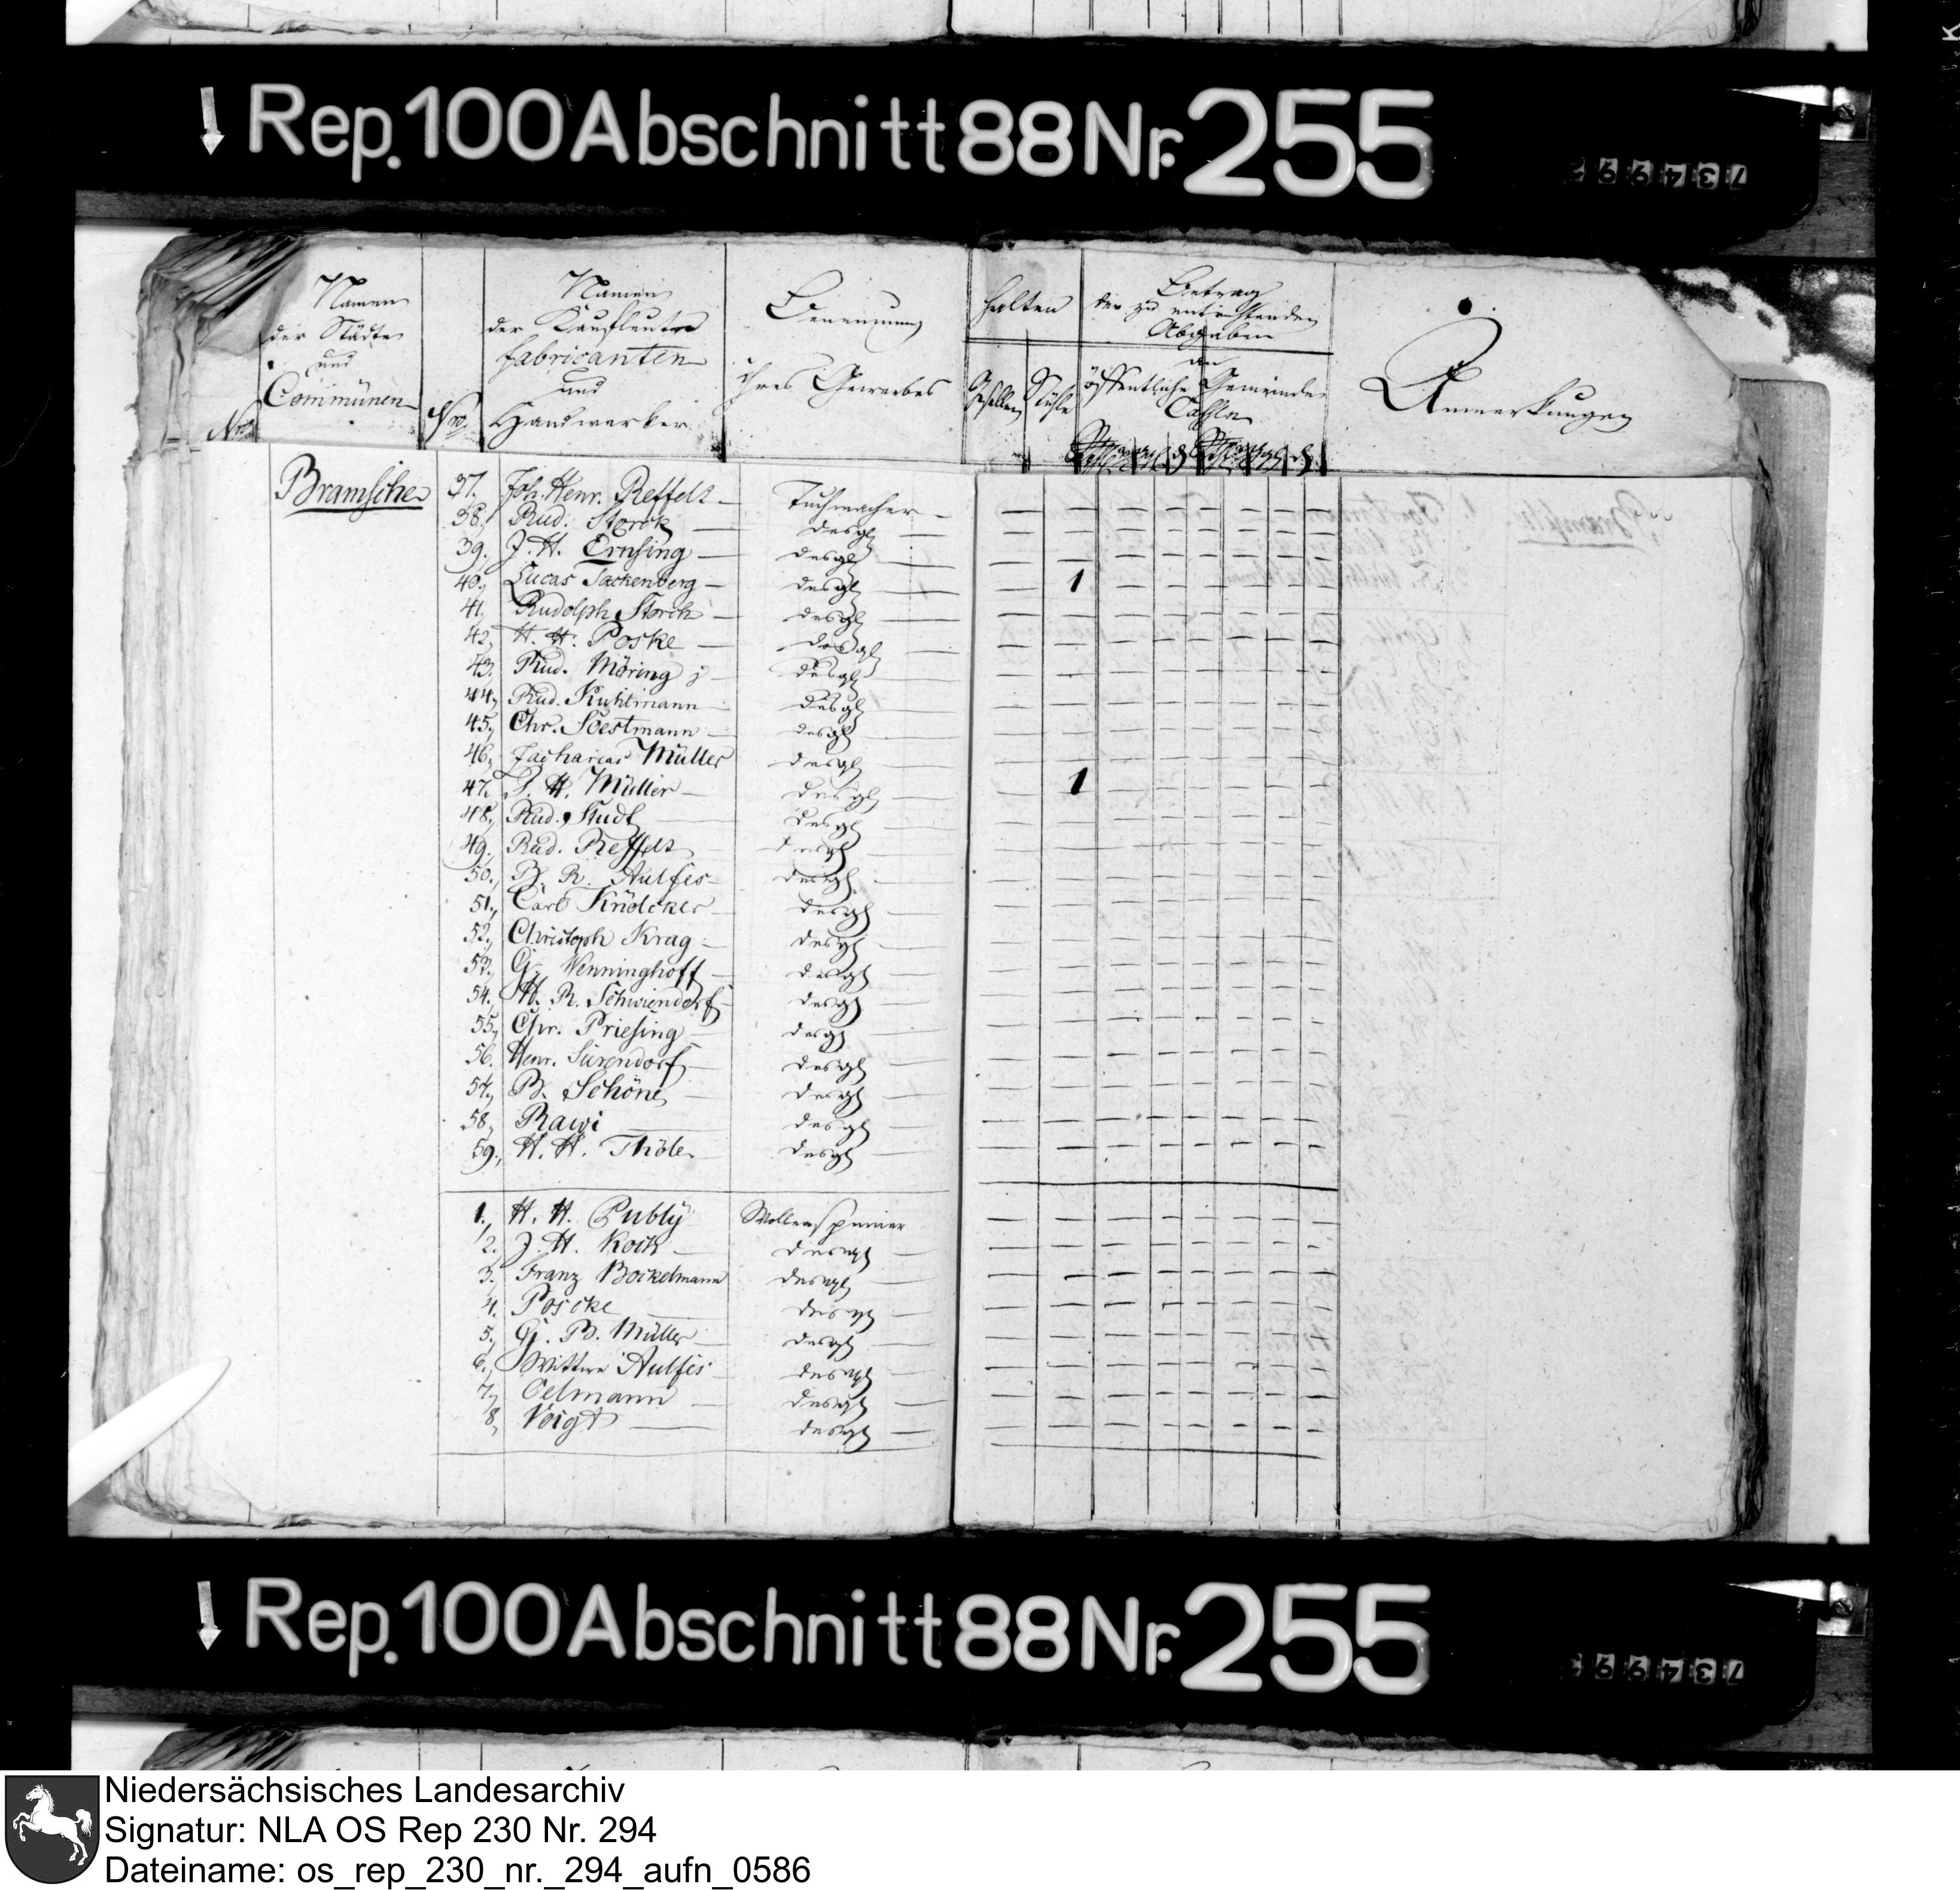 Rep. 100 Abschnitt 88 Nr. 255
734992
Namen der Städte und Communen
Nro
Namen der Kaufleute fabricanten und Handwerker
Benennung ihres Gewerbes
halten
Gesellen Stühle
Betrag der zu entrichtenden Abgaben an
öffentliche Gemeinde Cassen
Anmerkungen
Bramsche 37. Joh. Henr. Reffelt — Tuchmacher — — — — — — — — —
38, Rud. Storck — desgl — — — — — — — — —
39. J. H. Ernsing — desgl — — — — — — — — —
40, Lucas Tackenberg — desgl — — 1 — — — — — —
41, Rudolph Storck — desgl — — — — — — — — —
42, H. H. Poske — desgl — — — — — — — — —
43. Rud. Möring j — desgl — — — — — — — — —
44, Rud. Kuhlmann desgl — — — — — — — — —
45, Chr. Soestmann — desgl — — — — — — — — —
46, Zacharias Müller desgl — — — — — — — — —
47. H. Müller — desgl — — 1 — — — — — —
48, Rud. desgl — — — — — — — — —
49. Rud. Reffelt desgl — — — — — — — — —
50. B. R. Aulfes — desgl — — — — — — — — —
51, Carl Knölcker — desgl — — — — — — — — —
52, Christoph Krag — desgl — — — — — — — — —
53. G. Wenninghoff — desgl — — — — — — — — —
54. H. R. Schwiendorf — desgl — — — — — — — — —
55, Chr. Priesing — desgl — — — — — — — — —
56. Henr. Surendorf — desgl — — — — — — — — —
57, B. Schöne — desgl — — — — — — — — —
58, Rawi — desgl — — — — — — — — —
59, H. H. Thöle desgl — — — — — — — — —
1. H. H. Wollenspinner — — — — — — — —
2. J. H. Kock — desgl — — — — — — — — —
3. Franz Bockelmann desgl — — — — — — — — —
4. Poscke — desgl — — — — — — — — —
5, G. B. Müller — desgl — — — — — — — — —
6, Wittwe Aulfes — desgl — — — — — — — — —
7, Oelmann — desgl — — — — — — — — —
8, Voigt — desgl — — — — — — — — —
Rep. 100 Abschnitt 88 Nr. 255
Niedersächsisches Landesarchiv
Signatur: NLA OS Rep 230 Nr. 294
Dateiname: os_rep_230_nr._294_aufn_0586